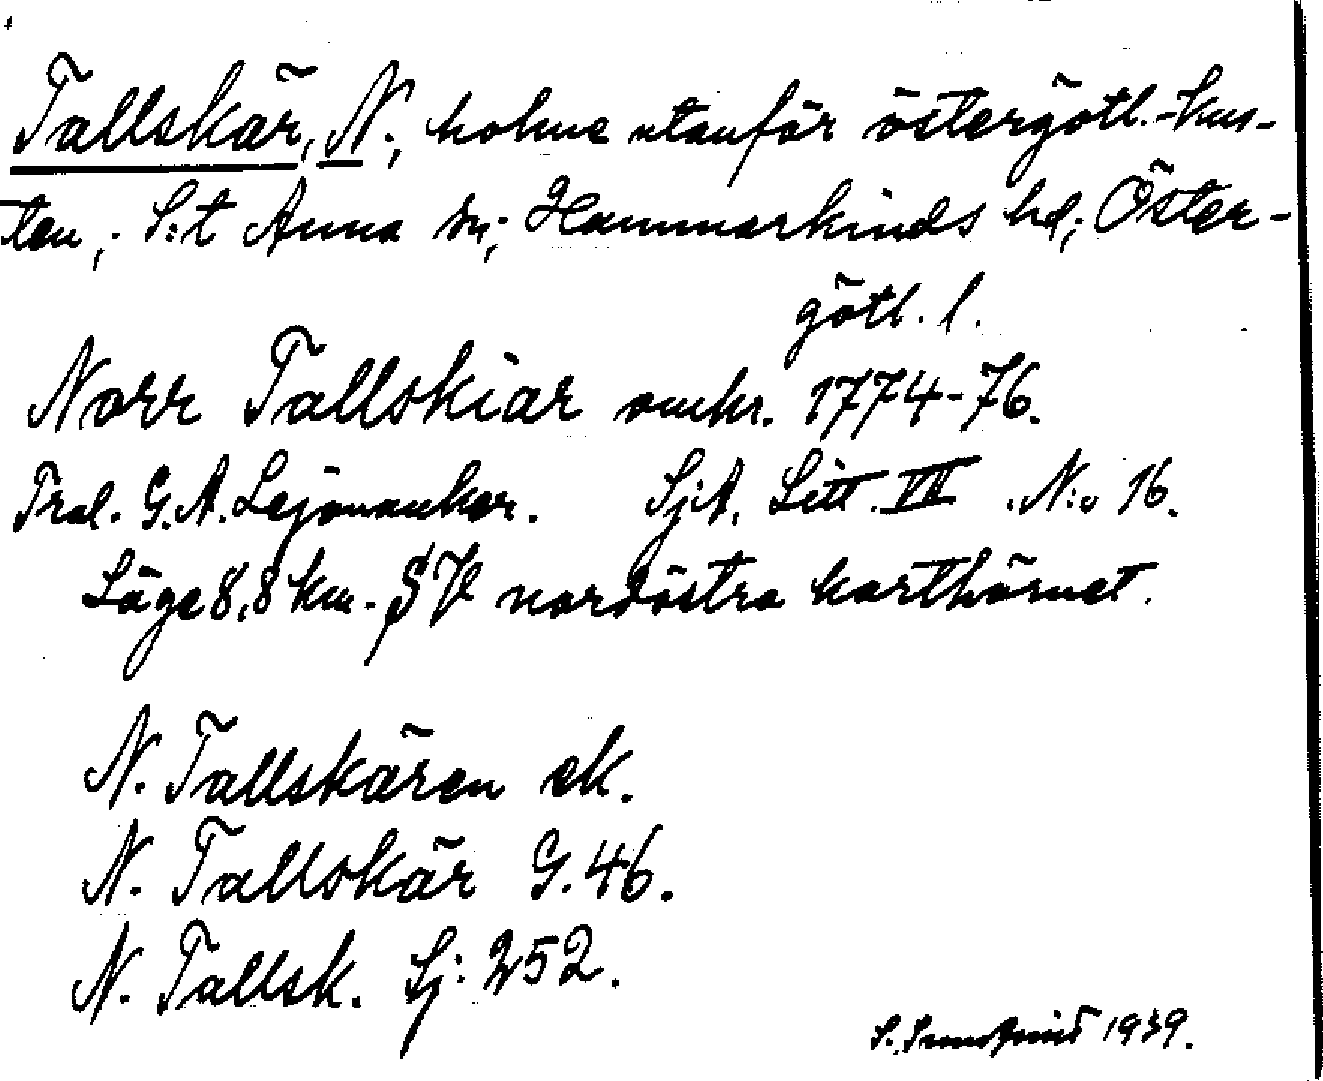 Tallskär, N., holme utanför östergötl.-kus-
ten, S:t Anna sn, Hammarkinds hd, Öster-
götl. l.
Norr Tallskiär omkr. 1774-76.
Tral. G. A. Lejonankar. Sj:A. Litt. VII N:o 16.
Läge 8,8 km. SV nordöstra karthörnet.
N. Tallskären ek.
N. Tallskär G. 46.
N. Tallsk. Sj: 252.
S. 1939.